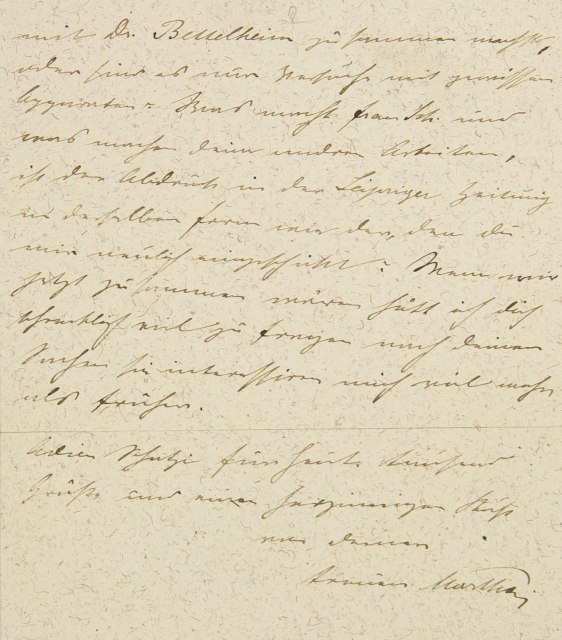 mit Dr. Bettelheim zusammen machst,
oder sind es nur Versuche mit gewissen
Apparaten? Was macht Frau Sch. und
was machen deine andren Arbeiten,
ist der Abdruck in der Leipziger Zeitung
in derselben Form wie der, den du
mir neulich eingeschickt? Wenn wir
jetzt zusammen wären hätt ich dich
schrecklich viel zu fragen nach deinen
Sachen sie interessiren mich viel mehr
als früher.
Adieu Schatzi für heute tausend
Grüße und einen herzinnigen Kuß
von deiner
treuen Martha